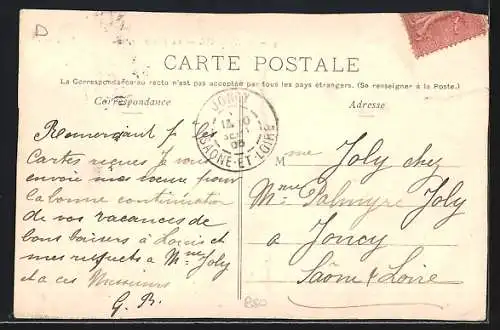 D
CARTE POSTALE
La Correspondance au recto n'est pas acceptée par tous les pays étrangers. (Se renseigner à la Poste.)
Correspondance
Adresse
JONCY
SAONE-ET-LOIRE
Remerciant p. les
Cartes reçues je vous
envoie mes vœux pour
la bonne continuation
de vos vacances de
bons baisers à Louis et
mes respects à Mme Joly
et a ces Messieurs
G. B.
Mme Joly chez
Mme Palmyre Joly
a Joncy
Saône & Loire